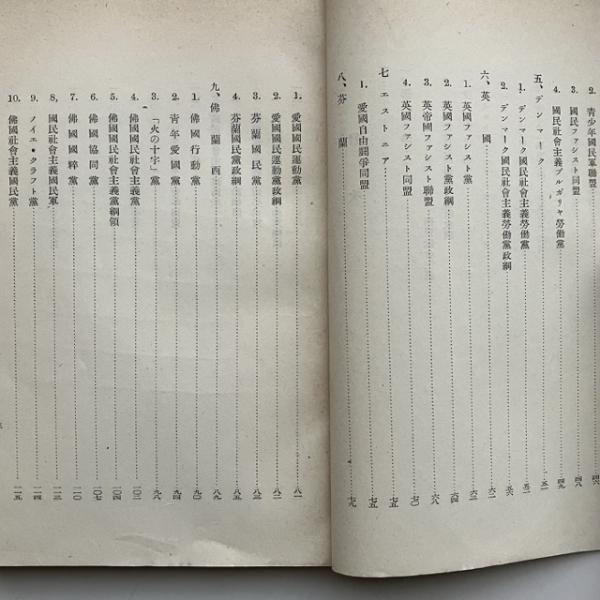 2. 青少年國民軍聯盟 四六
3. 國民ファシスト同盟 四八
4. 國民社會主義ブルガリヤ勞働黨 四九
五、デンマーク 五一
1. デンマーク國民社會主義勞働黨 五一
2. デンマーク國民社會主義勞働黨政綱 五六
六、英國 六一
1. 英國ファシスト黨 六二
2. 英國ファシスト黨政綱 六四
3. 英帝國ファシスト聯盟 六八
4. 英國ファシスト同盟 七〇
七 エストニア 七五
1. 愛國自由鬪爭同盟 七五
八、芬蘭 七九
1. 愛國國民運動黨 八一
2. 愛國國民運動黨政綱 八二
3. 芬蘭國民黨 八三
4. 芬蘭國民黨政綱 八五
九、佛蘭西 八九
1. 佛國行動黨 九〇
2. 青年愛國黨 九四
3. 「火の十字」黨 九八
4. 佛國國民社會主義黨 一〇二
5. 佛國國民社會主義黨綱領 一〇四
6. 佛國協同黨 一〇七
7. 佛國國粹黨 一一〇
8. 國民社會主義國民軍 一一三
9. ノイエ・クラフト黨 一一四
10. 佛國社會主義國民黨 一一五